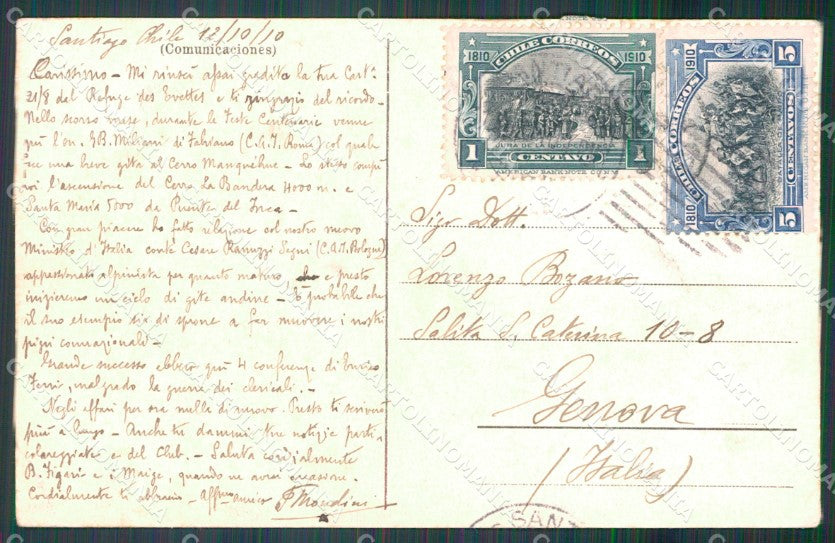 Santiago Chile 12/10/10
(Comunicaciones)
Carissimo - Mi riuscì assai gradita la tua Cart.ª
21/8 del Refuge des Evettes e ti ringrazio del ricordo -
Nello scorso mese, durante le Feste Centenarie venne
quì l'on. GB. Miliani di Fabriano (C.A.I. Roma) col quale
feci una breve gita al Cerro Manquéhue - Lo stesso compì
poi l'ascensione del Cerro La Bandera 4000 m. e
Santa Maria 5000 da Puente del Inca -
Con gran piacere ho fatto relazione col nostro nuovo
Ministro d'Italia conte Cesare Ranuzzi Segni (C.A.I. Bologna)
appassionato alpinista per quanto maturo e presto
inizieremo un ciclo di gite andine - È probabile che
il suo esempio sia di sprone a far muovere i nostri
pigri connazionali -
Grande successo ebbero quì 4 conferenze di Enrico
Ferri, malgrado la guerra dei clericali. -
Negli affari per ora nulla di nuovo. Presto ti scriverò
più a lungo - Anche tu dammi tue notizie
e del Club. - Saluta cordialmente
B. Figari e i Maige, quando ne avrai occasione.
Cordialmente ti abbraccio - Aff.mo amico F Mondini
CHILE CORREOS
1810 1910
JURA DE LA INDEPENDENCIA
1 CENTAVO 1
AMERICAN BANK NOTE CO. N.Y.
CHILE CORREOS
1810 1910
5 CENTAVOS 5
Sigr Dott.
Lorenzo Bozano
Salita S. Caterina 10-8
Genova
(Italia)
SANT
CARTOLINOMANIA